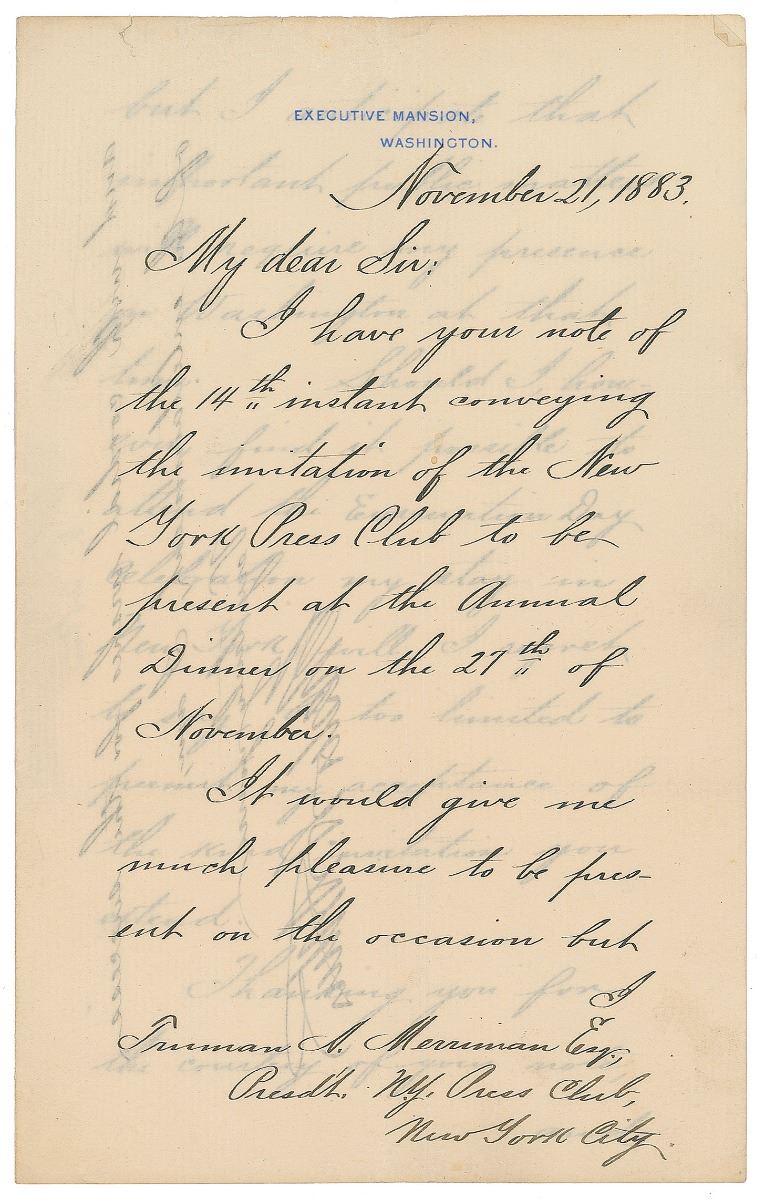 EXECUTIVE MANSION,
WASHINGTON.
November 21, 1883.
My dear Sir:
I have your note of
the 14th instant conveying
the invitation of the New
York Press Club to be
present at the Annual
Dinner on the 27th of
November.
It would give me
much pleasure to be pres-
ent on the occasion but
I
Truman A. Merriman Esq.,
Presdt. N.Y. Press Club,
New York City.